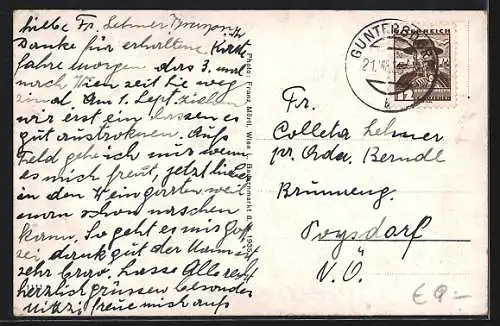 Liebe Fr. Lehner
Danke für erhaltene Karte
fahre morgen das 3. mal
nach Wien zeit sie weg
sind. Am 1. Sept. ziehen
wir erst ein lassen es
gut austroknen. Aufs
Feld gehe ich nur wenn
es mich freut, jetzt lieber
in den Weingarten weil
man schon naschen
kann. So geht es mir Gott
sei dank gut der
sehr brav. Lasse Alle recht
herzlich grüssen besonders
freue mich aufs
Photo: Franz Mörtl, Wien
GUNTERS
ÖSTERREICH
Fr.
Colleta Lehner
pr. Adr. Berndl
Brunneng.
Poysdorf
N.Ö.
€ 9.-